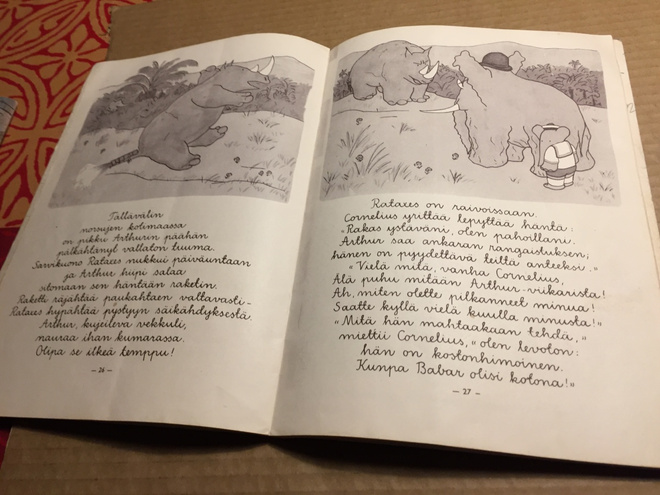 Tällävälin
norsujen kotimaassa
on pikku Arthurin päähän
pälkähtänyt vallaton tuuma.
Sarvikuono Rataxes nukkui päiväuntaan
ja Arthur hiipi salaa
sitomaan sen häntään raketin.
Raketti räjähtää paukahtaen valtavasti–
Rataxes hypähtää pystyyn säikähdyksestä
Arthur, kujeileva vekkuli,
nauraa ihan kumarassa.
Olipa se ilkeä temppu!
– 26 –
Rataxes on raivoissaan.
Cornelius yrittää lepyttää häntä:
»Rakas ystäväni, olen pahoillani.
Arthur saa ankaran rangaistuksen;
hänen on pyydettävä teiltä anteeksi.»
»Vielä mitä, vanha Cornelius,
Älä puhu mitään Arthur-viikarista!
Ah, miten olette pilkanneet minua!
Saatte kyllä vielä kuulla minusta!»
»Mitä hän mahtaakaan tehdä,»
miettii Cornelius, »olen levoton:
hän on kostonhimoinen.
Kunpa Babar olisi kotona!»
– 27 –